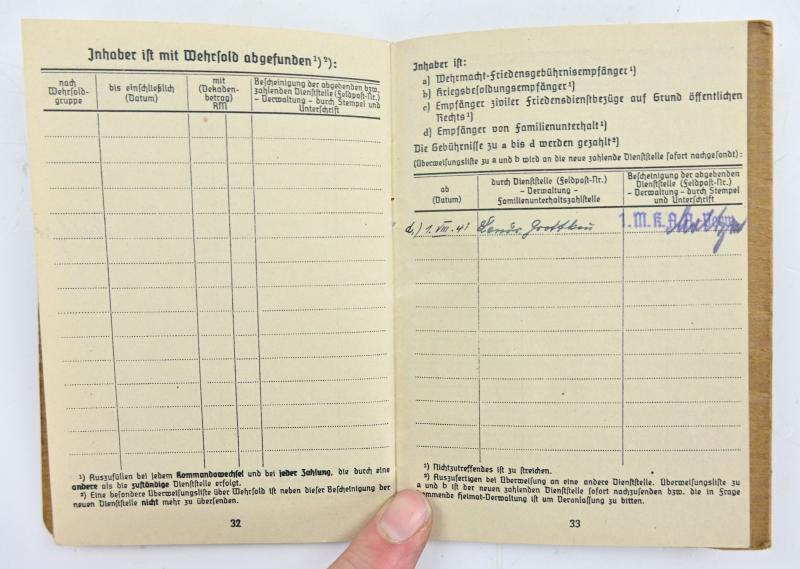 Inhaber ist mit Wehrsold abgefunden ¹) ²):
nach
Wehrsold-
gruppe
bis einschließlich
(Datum)
mit
(Dekaden-
betrag)
RM
Bescheinigung der abgebenden bzw.
zahlenden Dienststelle (Feldpost-Nr.)
– Verwaltung – durch Stempel und
Unterschrift
¹) Auszufüllen bei jedem Kommandowechsel und bei jeder Zahlung, die durch eine
andere als die zuständige Dienststelle erfolgt.
²) Eine besondere Überweisungsliste über Wehrsold ist neben dieser Bescheinigung der
neuen Dienststelle nicht mehr zu übersenden.
32
Inhaber ist:
a) Wehrmacht-Friedensgebührnisempfänger ¹)
b) Kriegsbesoldungsempfänger ¹)
c) Empfänger ziviler Friedensdienstbezüge auf Grund öffentlichen
Rechts ¹)
d) Empfänger von Familienunterhalt ¹)
Die Gebührnisse zu a bis d werden gezahlt ²)
(Überweisungsliste zu a und b wird an die neue zahlende Dienststelle sofort nachgesandt):
ab
(Datum)
durch Dienststelle (Feldpost-Nr.)
– Verwaltung –
Familienunterhaltszahlstelle
Bescheinigung der abgebenden
Dienststelle (Feldpost-Nr.)
– Verwaltung – durch Stempel
und Unterschrift
d.) 1. VIII. 41 Landr. Grottkau 1. M. K. A. A.
¹) Nichtzutreffendes ist zu streichen.
²) Auszufertigen bei Überweisung an eine andere Dienststelle. Überweisungsliste zu
a und b ist der neuen zahlenden Dienststelle sofort nachzusenden bzw. die in Frage
kommende Heimat-Verwaltung ist um Veranlassung zu bitten.
33